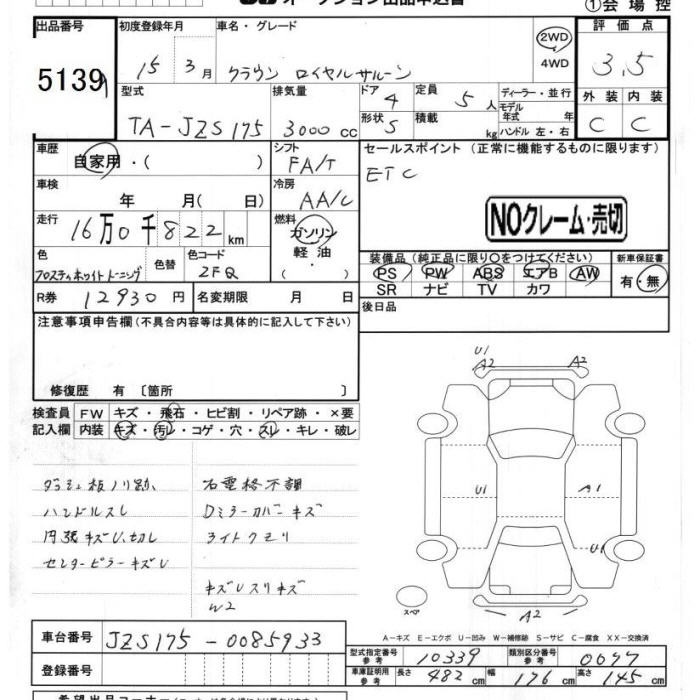 オークション出品申込書
①会場控
出品番号
5139
初度登録年月
15年3月
車名・グレード
クラウン ロイヤルサルーン
2WD
4WD
評価点
3.5
型式
TA-JZS175
排気量
3000cc
ドア 4
形状 5
定員 5人
積載 kg
ディーラー・並行
モデル年式 年
ハンドル 左・右
外装 内装
C C
車歴
自家用・( )
シフト
FA/T
セールスポイント (正常に機能するものに限ります)
ETC
車検
年 月( 日)
冷房
AA/C
NOクレーム・売切
走行
16万0千822km
燃料
ガソリン
軽油
( ・ )
色
フロスティホワイトトーニング
色替
色コード
2FQ
装備品(純正品に限り〇をつけてください)
PS PW ABS エアB AW
SR ナビ TV カワ
新車保証書
有・無
R券 12930円
名変期限 月 日
後日品
注意事項申告欄(不具合内容等は具体的に記入して下さい)
修復歴 有〔箇所 〕
検査員記入欄
FW キズ・飛石・ヒビ割・リペア跡・×要
内装 キズ・汚レ・コゲ・穴・スレ・キレ・破レ
ダッシュ板ノリ跡
ハンドルスレ
内張キズU、切レ
センターピラーキズU
右電格不調
Dミラーカバーキズ
ライトクモリ
キズUスリキズ
W2
U1
A2 A2
U1 A1
U1
A2
スペア
A−キズ E−エクボ U−凹み W−補修跡 S−サビ C−腐食 XX−交換済
車台番号
JZS175-0085933
登録番号
型式指定番号参考 10339
類別区分番号参考 0077
車庫証明記入用参考 長さ 482cm 幅 176cm 高さ 145cm